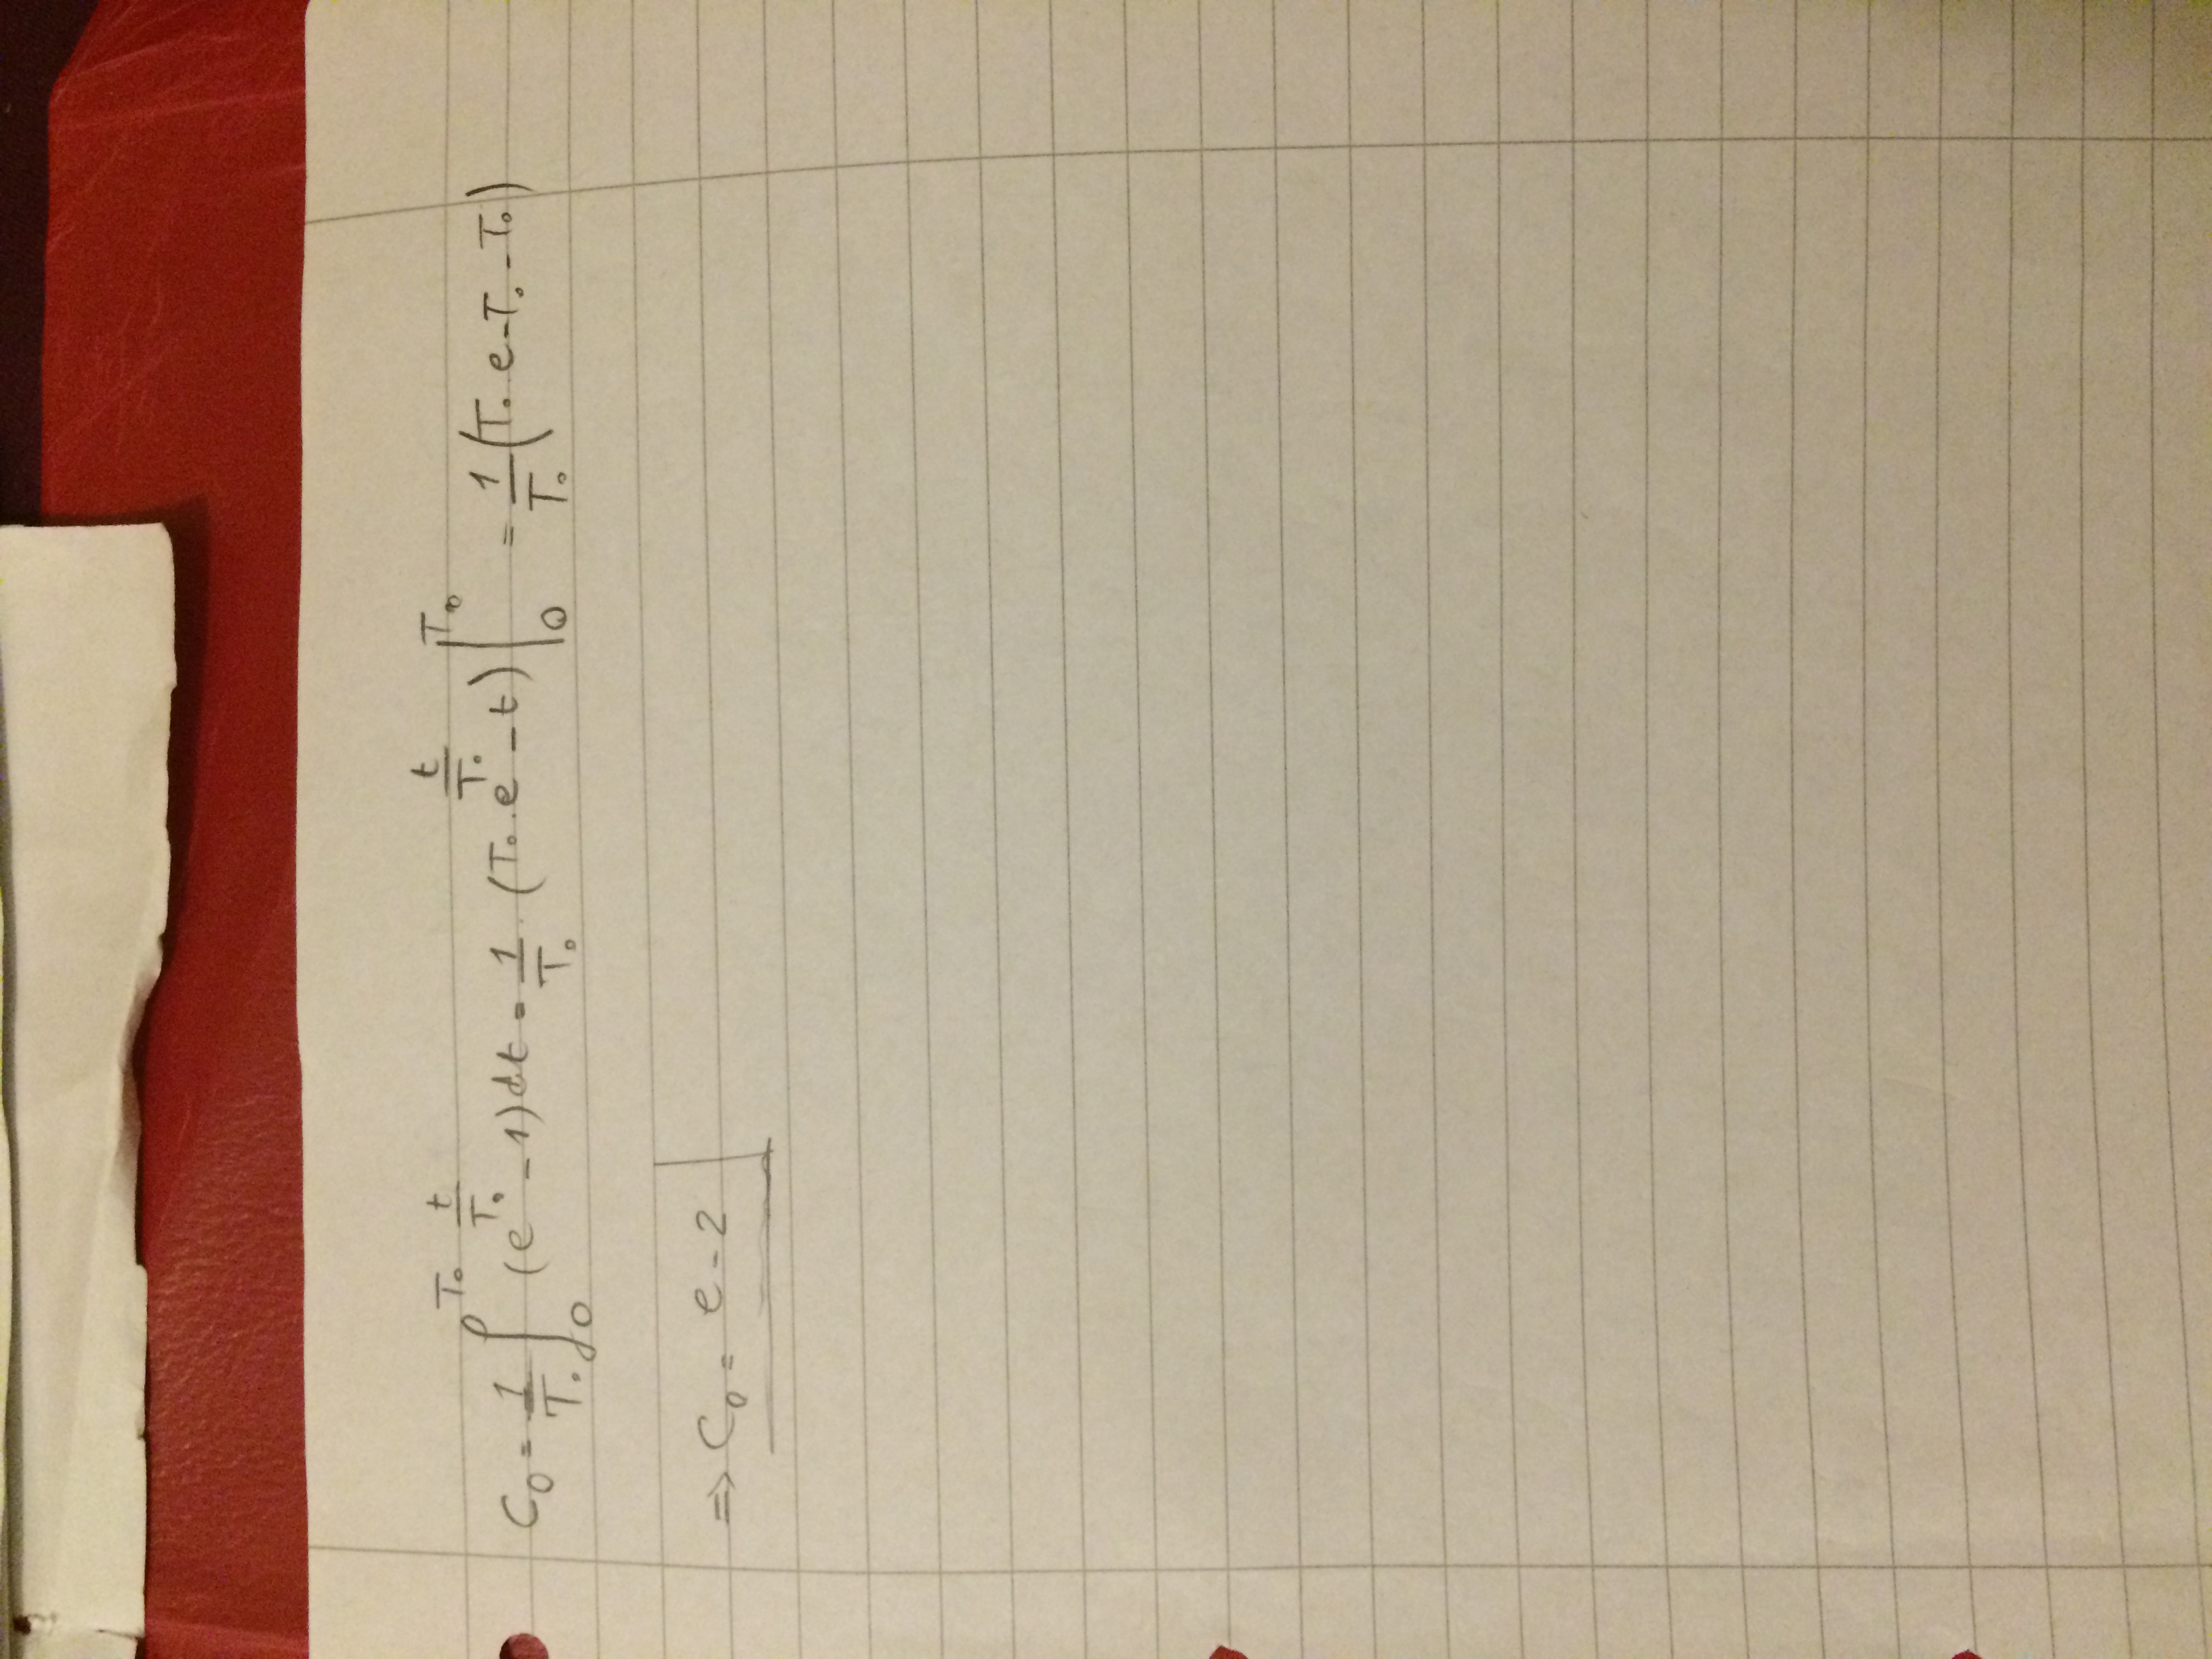 C₀ = 1/T₀ ∫₀^T₀ (e^(t/T₀) - 1) dt = 1/T₀ · (T₀ · e^(t/T₀) - t) |₀^T₀ = 1/T₀ (T₀ e - T₀ - T₀)
⇒ C₀ = e - 2